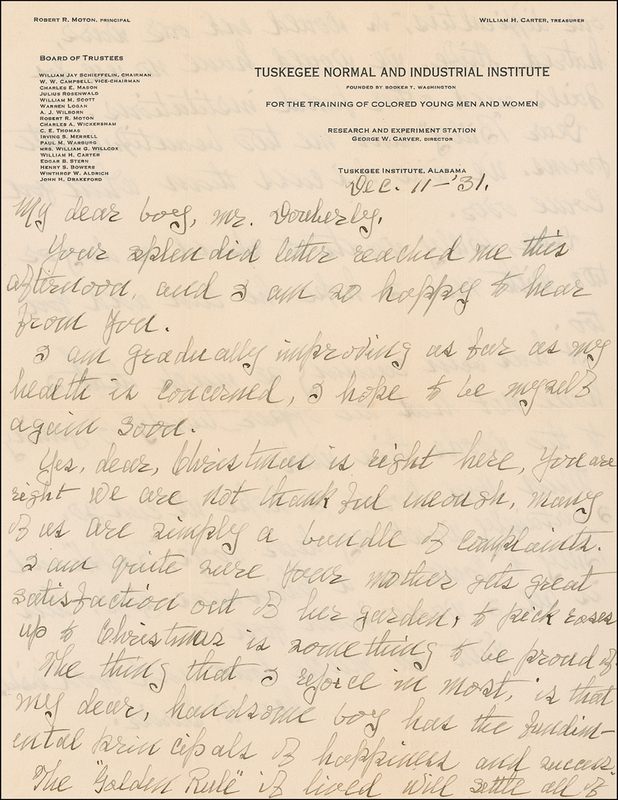 ROBERT R. MOTON, PRINCIPAL
WILLIAM H. CARTER, TREASURER
BOARD OF TRUSTEES
WILLIAM JAY SCHIEFFELIN, CHAIRMAN
W. W. CAMPBELL, VICE-CHAIRMAN
CHARLES E. MASON
JULIUS ROSENWALD
WILLIAM M. SCOTT
WARREN LOGAN
A. J. WILBORN
ROBERT R. MOTON
CHARLES A. WICKERSHAM
C. E. THOMAS
IRVING S. MERRELL
PAUL M. WARBURG
MRS. WILLIAM G. WILLCOX
WILLIAM H. CARTER
EDGAR B. STERN
HENRY S. BOWERS
WINTHROP W. ALDRICH
JOHN H. DRAKEFORD
TUSKEGEE NORMAL AND INDUSTRIAL INSTITUTE
FOUNDED BY BOOKER T. WASHINGTON
FOR THE TRAINING OF COLORED YOUNG MEN AND WOMEN
RESEARCH AND EXPERIMENT STATION
GEORGE W. CARVER, DIRECTOR
TUSKEGEE INSTITUTE, ALABAMA
Dec. 11-'31.
My dear boy, mr. Douherly,
Your splendid letter reached me this
afternoon, and I am so happy to hear
from you.
I am gradually improving as far as my
health is concerned, I hope to be myself
again soon.
Yes, dear, Christmas is right here, you are
right we are not thankful enough, many
of us are simply a bundle of complaints.
I am quite sure your mother gets great
satisfaction out of her garden, to pick roses
up to Christmas is something to be proud of.
The thing that I rejoice in most, is that
my dear, handsome boy has the fundim-
ental principals of happiness and success.
The "Golden Rule" if lived will settle all of